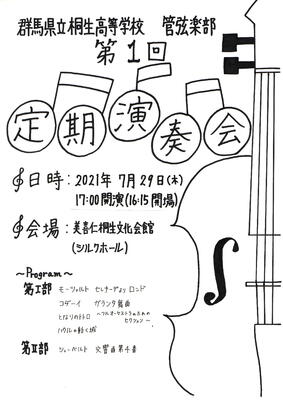 群馬県立桐生高等学校 管弦楽部
第1回
定期演奏会
日時:2021年7月29日(木)
17:00開演(16:15開場)
会場:美喜仁桐生文化会館
(シルクホール)
~Program~
第Ⅰ部 モーツァルト セレナーデより ロンド
コダーイ ガランタ舞曲
となりのトトロ ~フルオーケストラのための
セクション~
ハウルの動く城
第Ⅱ部 シューベルト 交響曲第4番